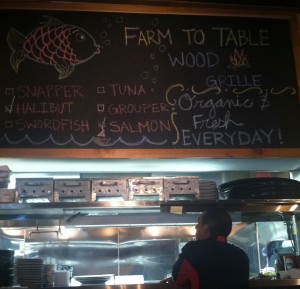 FARM TO TABLE
WOOD GRILLE
SNAPPER TUNA
HALIBUT GROUPER
SWORDFISH SALMON
Organic &
Fresh
EVERYDAY!